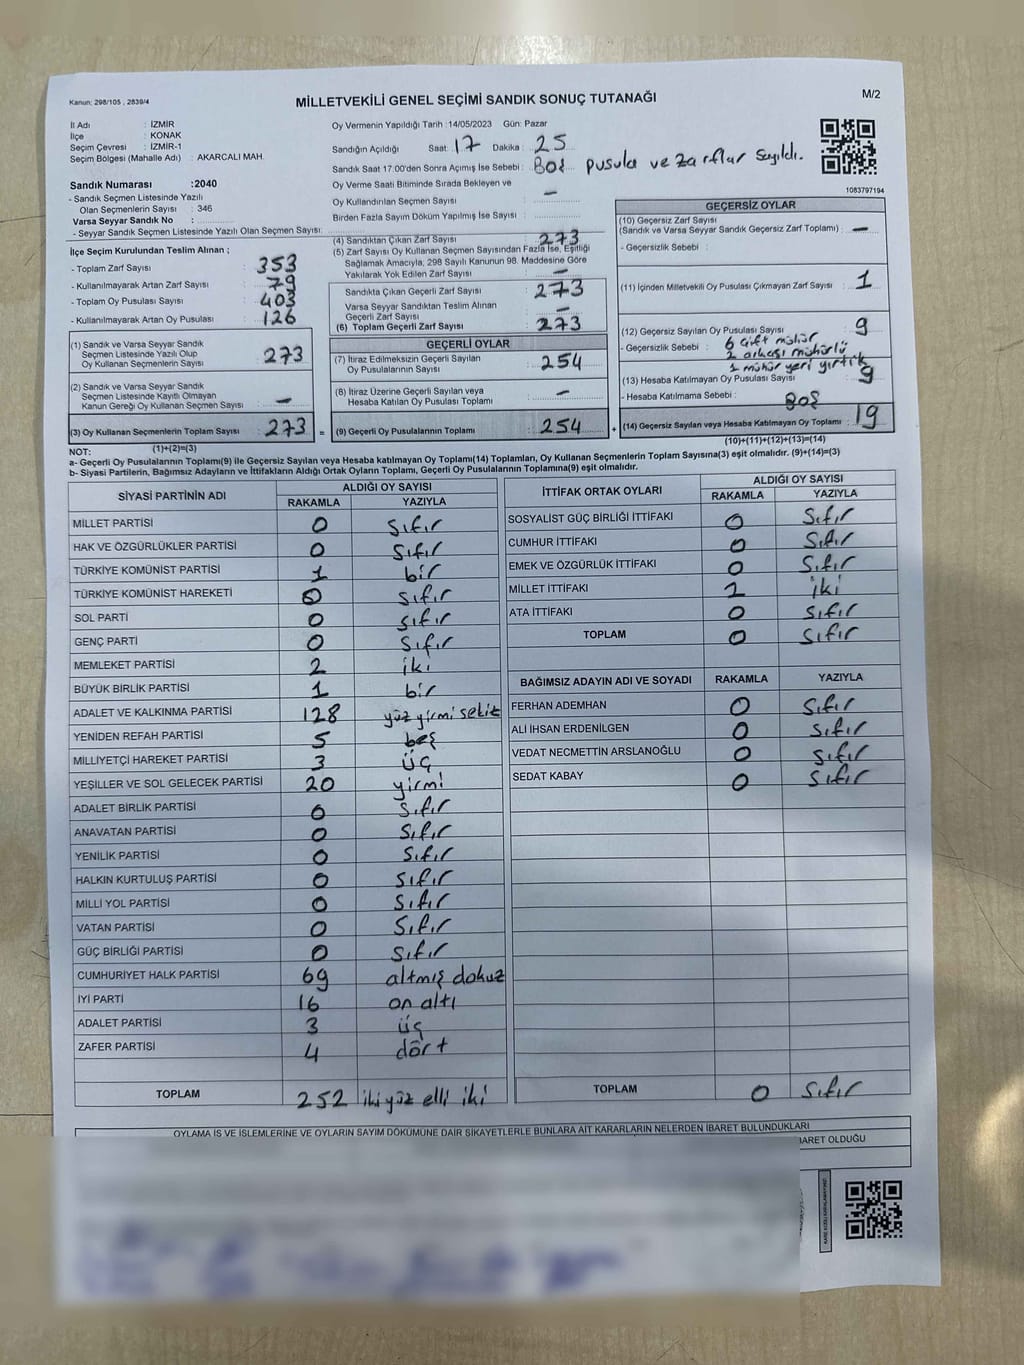 Kanun: 298/105 , 2839/4
MİLLETVEKİLİ GENEL SEÇİMİ SANDIK SONUÇ TUTANAĞI
M/2
İl Adı : İZMİR
İlçe : KONAK
Seçim Çevresi : İZMİR-1
Seçim Bölgesi (Mahalle Adı) : AKARCALI MAH.
Sandık Numarası :2040
- Sandık Seçmen Listesinde Yazılı
Olan Seçmenlerin Sayısı : 346
Varsa Seyyar Sandık No :
- Seyyar Sandık Seçmen Listesinde Yazılı Olan Seçmen Sayısı:
Oy Vermenin Yapıldığı Tarih :14/05/2023 Gün: Pazar
Sandığın Açıldığı Saat : 17 Dakika : 25
Sandık Saat 17.00'den Sonra Açılmış İse Sebebi : Boş pusula ve zarflar sayıldı.
Oy Verme Saati Bitiminde Sırada Bekleyen ve
Oy Kullandırılan Seçmen Sayısı : —
Birden Fazla Sayım Döküm Yapılmış İse Sayısı :
1083797194
İlçe Seçim Kurulundan Teslim Alınan ;
- Toplam Zarf Sayısı : 353
- Kullanılmayarak Artan Zarf Sayısı : 79
- Toplam Oy Pusulası Sayısı : 403
- Kullanılmayarak Artan Oy Pusulası : 126
(1) Sandık ve Varsa Seyyar Sandık
Seçmen Listesinde Yazılı Olup
Oy Kullanan Seçmenlerin Sayısı : 273
(2) Sandık ve Varsa Seyyar Sandık
Seçmen Listesinde Kayıtlı Olmayan
Kanun Gereği Oy Kullanan Seçmen Sayısı : —
(3) Oy Kullanan Seçmenlerin Toplam Sayısı : 273 =
(1)+(2)=(3)
(4) Sandıktan Çıkan Zarf Sayısı : 273
(5) Zarf Sayısı Oy Kullanan Seçmen Sayısından Fazla İse, Eşitliği
Sağlamak Amacıyla, 298 Sayılı Kanunun 98. Maddesine Göre
Yakılarak Yok Edilen Zarf Sayısı : —
Sandıkta Çıkan Geçerli Zarf Sayısı : 273
Varsa Seyyar Sandıktan Teslim Alınan
Geçerli Zarf Sayısı : —
(6) Toplam Geçerli Zarf Sayısı : 273
GEÇERLİ OYLAR
(7) İtiraz Edilmeksizin Geçerli Sayılan
Oy Pusulalarının Sayısı : 254
(8) İtiraz Üzerine Geçerli Sayılan veya
Hesaba Katılan Oy Pusulası Toplamı : —
(9) Geçerli Oy Pusulalarının Toplamı : 254 +
GEÇERSİZ OYLAR
(10) Geçersiz Zarf Sayısı
(Sandık ve Varsa Seyyar Sandık Geçersiz Zarf Toplamı) : —
- Geçersizlik Sebebi :
(11) İçinden Milletvekili Oy Pusulası Çıkmayan Zarf Sayısı : 1
(12) Geçersiz Sayılan Oy Pusulası Sayısı : 9
- Geçersizlik Sebebi : 6 çift mühür
2 arkası mühürlü
1 mühür yeri yırtık
(13) Hesaba Katılmayan Oy Pusulası Sayısı : 9
- Hesaba Katılmama Sebebi : Boş
(14) Geçersiz Sayılan veya Hesaba Katılmayan Oy Toplamı : 19
(10)+(11)+(12)+(13)=(14)
NOT:
a- Geçerli Oy Pusulalarının Toplamı(9) ile Geçersiz Sayılan veya Hesaba katılmayan Oy Toplamı(14) Toplamları, Oy Kullanan Seçmenlerin Toplam Sayısına(3) eşit olmalıdır. (9)+(14)=(3)
b- Siyasi Partilerin, Bağımsız Adayların ve İttifakların Aldığı Ortak Oyların Toplamı, Geçerli Oy Pusulalarının Toplamına(9) eşit olmalıdır.
SİYASİ PARTİNİN ADI ALDIĞI OY SAYISI
RAKAMLA YAZIYLA
MİLLET PARTİSİ 0 sıfır
HAK VE ÖZGÜRLÜKLER PARTİSİ 0 sıfır
TÜRKİYE KOMÜNİST PARTİSİ 1 bir
TÜRKİYE KOMÜNİST HAREKETİ 0 sıfır
SOL PARTİ 0 sıfır
GENÇ PARTİ 0 sıfır
MEMLEKET PARTİSİ 2 iki
BÜYÜK BİRLİK PARTİSİ 1 bir
ADALET VE KALKINMA PARTİSİ 128 yüz yirmi sekiz
YENİDEN REFAH PARTİSİ 5 beş
MİLLİYETÇİ HAREKET PARTİSİ 3 üç
YEŞİLLER VE SOL GELECEK PARTİSİ 20 yirmi
ADALET BİRLİK PARTİSİ 0 sıfır
ANAVATAN PARTİSİ 0 sıfır
YENİLİK PARTİSİ 0 sıfır
HALKIN KURTULUŞ PARTİSİ 0 sıfır
MİLLİ YOL PARTİSİ 0 sıfır
VATAN PARTİSİ 0 sıfır
GÜÇ BİRLİĞİ PARTİSİ 0 sıfır
CUMHURİYET HALK PARTİSİ 69 altmış dokuz
İYİ PARTİ 16 on altı
ADALET PARTİSİ 3 üç
ZAFER PARTİSİ 4 dört
TOPLAM 252 iki yüz elli iki
İTTİFAK ORTAK OYLARI ALDIĞI OY SAYISI
RAKAMLA YAZIYLA
SOSYALİST GÜÇ BİRLİĞİ İTTİFAKI 0 sıfır
CUMHUR İTTİFAKI 0 sıfır
EMEK VE ÖZGÜRLÜK İTTİFAKI 0 sıfır
MİLLET İTTİFAKI 2 iki
ATA İTTİFAKI 0 sıfır
TOPLAM 0 sıfır
BAĞIMSIZ ADAYIN ADI VE SOYADI RAKAMLA YAZIYLA
FERHAN ADEMHAN 0 sıfır
ALİ İHSAN ERDENİLGEN 0 sıfır
VEDAT NECMETTİN ARSLANOĞLU 0 sıfır
SEDAT KABAY 0 sıfır
TOPLAM 0 sıfır
OYLAMA İŞ VE İŞLEMLERİNE VE OYLARIN SAYIM DÖKÜMÜNE DAİR ŞİKAYETLERLE BUNLARA AİT KARARLARIN NELERDEN İBARET BULUNDUKLARI
BARET OLDUĞU